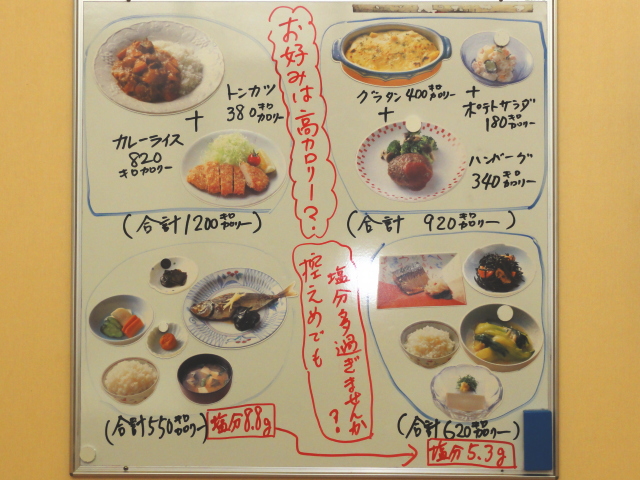 お好みは高カロリー?
カレーライス
820
キロカロリー
+
トンカツ
380キロカロリー
(合計1200キロカロリー)
グラタン400キロカロリー
+
+
ポテトサラダ
180キロカロリー
ハンバーグ
340キロカロリー
(合計 920キロカロリー)
控えめでも
塩分多過ぎませんか?
(合計550キロカロリー)
塩分8.8g
(合計620キロカロリー)
塩分5.3g